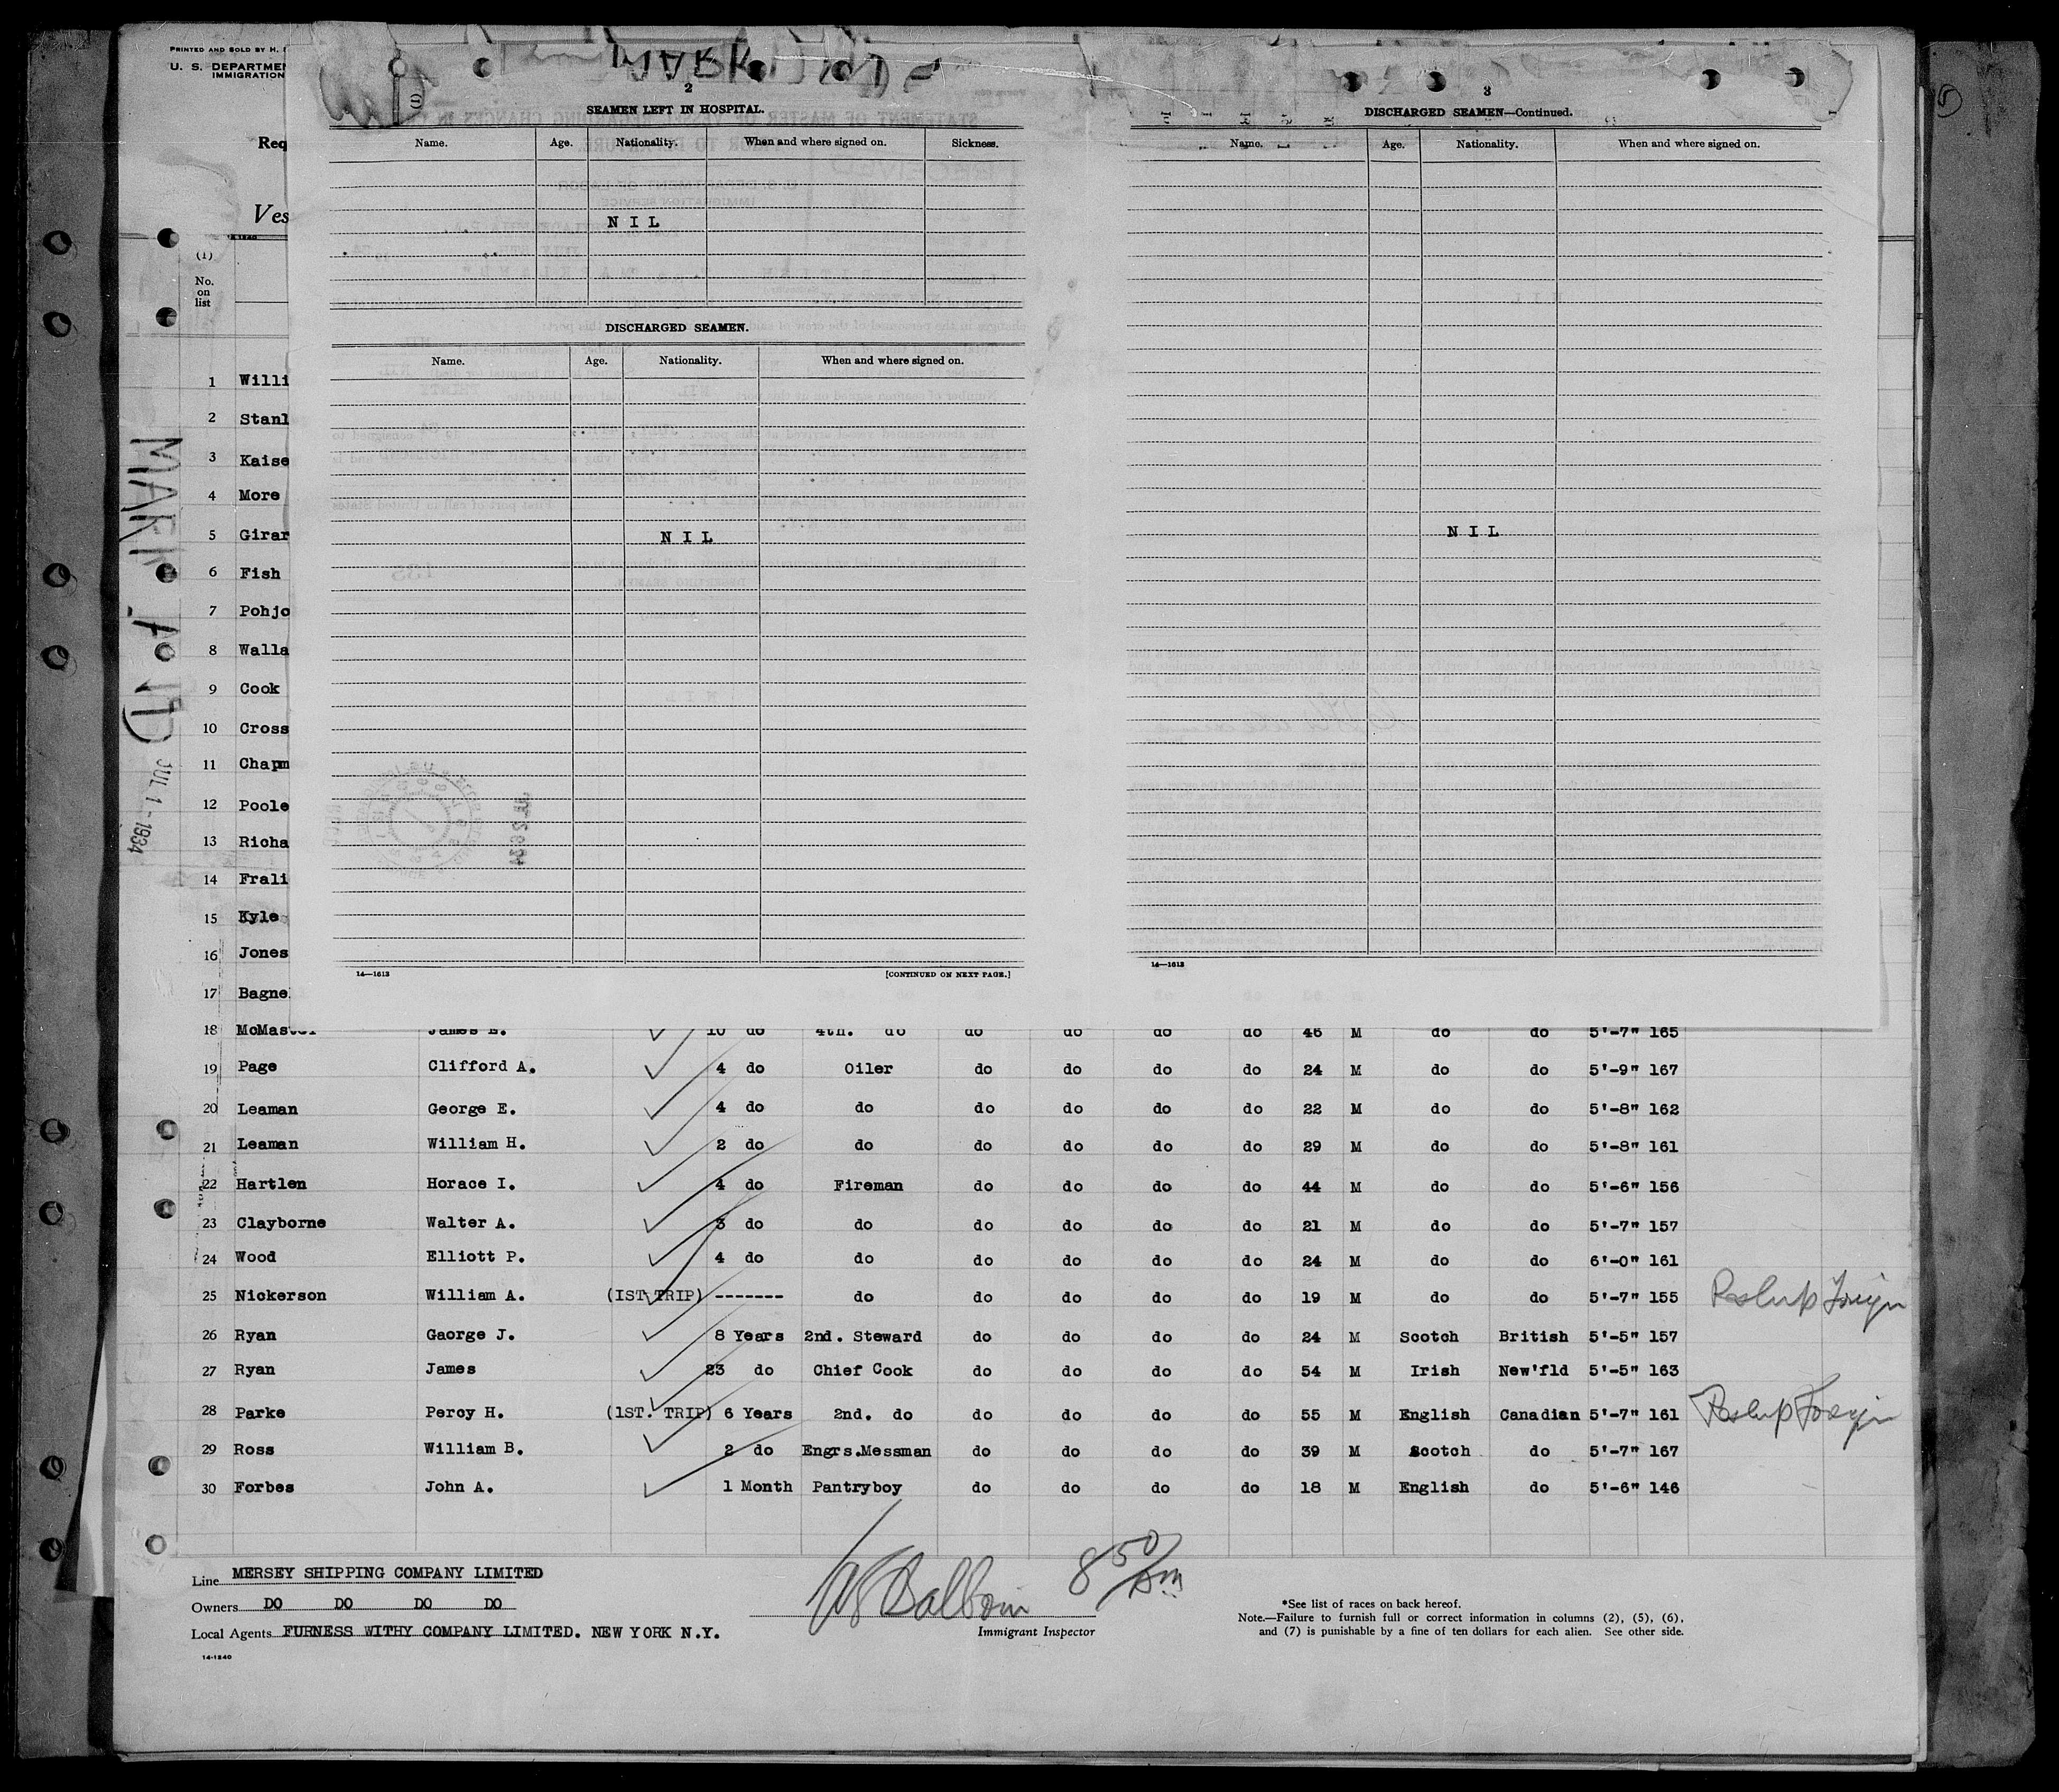 PRINTED AND SOLD BY H.
U. S. DEPARTMEN
IMMIGRATION
Req
Ves
(1)
No.
on
list
1 Willi
2 Stanl
3 Kaise
4 More
5 Girar
6 Fish
7 Pohjo
8 Walla
9 Cook
10 Cross
11 Chapm
12 Poole
13 Richa
14 Frali
15 Kyle
16 Jones
17 Bagne
JUL 1-1934
2
SEAMEN LEFT IN HOSPITAL.
Name. Age. Nationality. When and where signed on. Sickness.
N I L
DISCHARGED SEAMEN.
Name. Age. Nationality. When and where signed on.
N I L
14—1613 [CONTINUED ON NEXT PAGE.]
3
DISCHARGED SEAMEN—Continued.
Name. Age. Nationality. When and where signed on.
N I L
14—1613
18 McMaster James E. 10 do 4th. do do do do do 46 M do do 5'-7" 165
19 Page Clifford A. 4 do Oiler do do do do 24 M do do 5'-9" 167
20 Leaman George E. 4 do do do do do do 22 M do do 5'-8" 162
21 Leaman William H. 2 do do do do do do 29 M do do 5'-8" 161
22 Hartlen Horace I. 4 do Fireman do do do do 44 M do do 5'-6" 156
23 Clayborne Walter A. 3 do do do do do do 21 M do do 5'-7" 157
24 Wood Elliott P. 4 do do do do do do 24 M do do 6'-0" 161
25 Nickerson William A. (IST TRIP) ------- do do do do do 19 M do do 5'-7" 155
26 Ryan Gaorge J. 8 Years 2nd. Steward do do do do 24 M Scotch British 5'-5" 157
27 Ryan James 23 do Chief Cook do do do do 54 M Irish New'fld 5'-5" 163
28 Parke Percy H. (1ST. TRIP) 6 Years 2nd. do do do do do 55 M English Canadian 5'-7" 161
29 Ross William B. 2 do Engrs.Messman do do do do 39 M Scotch do 5'-7" 167
30 Forbes John A. 1 Month Pantryboy do do do do 18 M English do 5'-6" 146
Line MERSEY SHIPPING COMPANY LIMITED
Owners DO DO DO DO
Local Agents FURNESS WITHY COMPANY LIMITED. NEW YORK N.Y.
14-1240
8 50 AM
Immigrant Inspector
*See list of races on back hereof.
Note.—Failure to furnish full or correct information in columns (2), (5), (6),
and (7) is punishable by a fine of ten dollars for each alien. See other side.